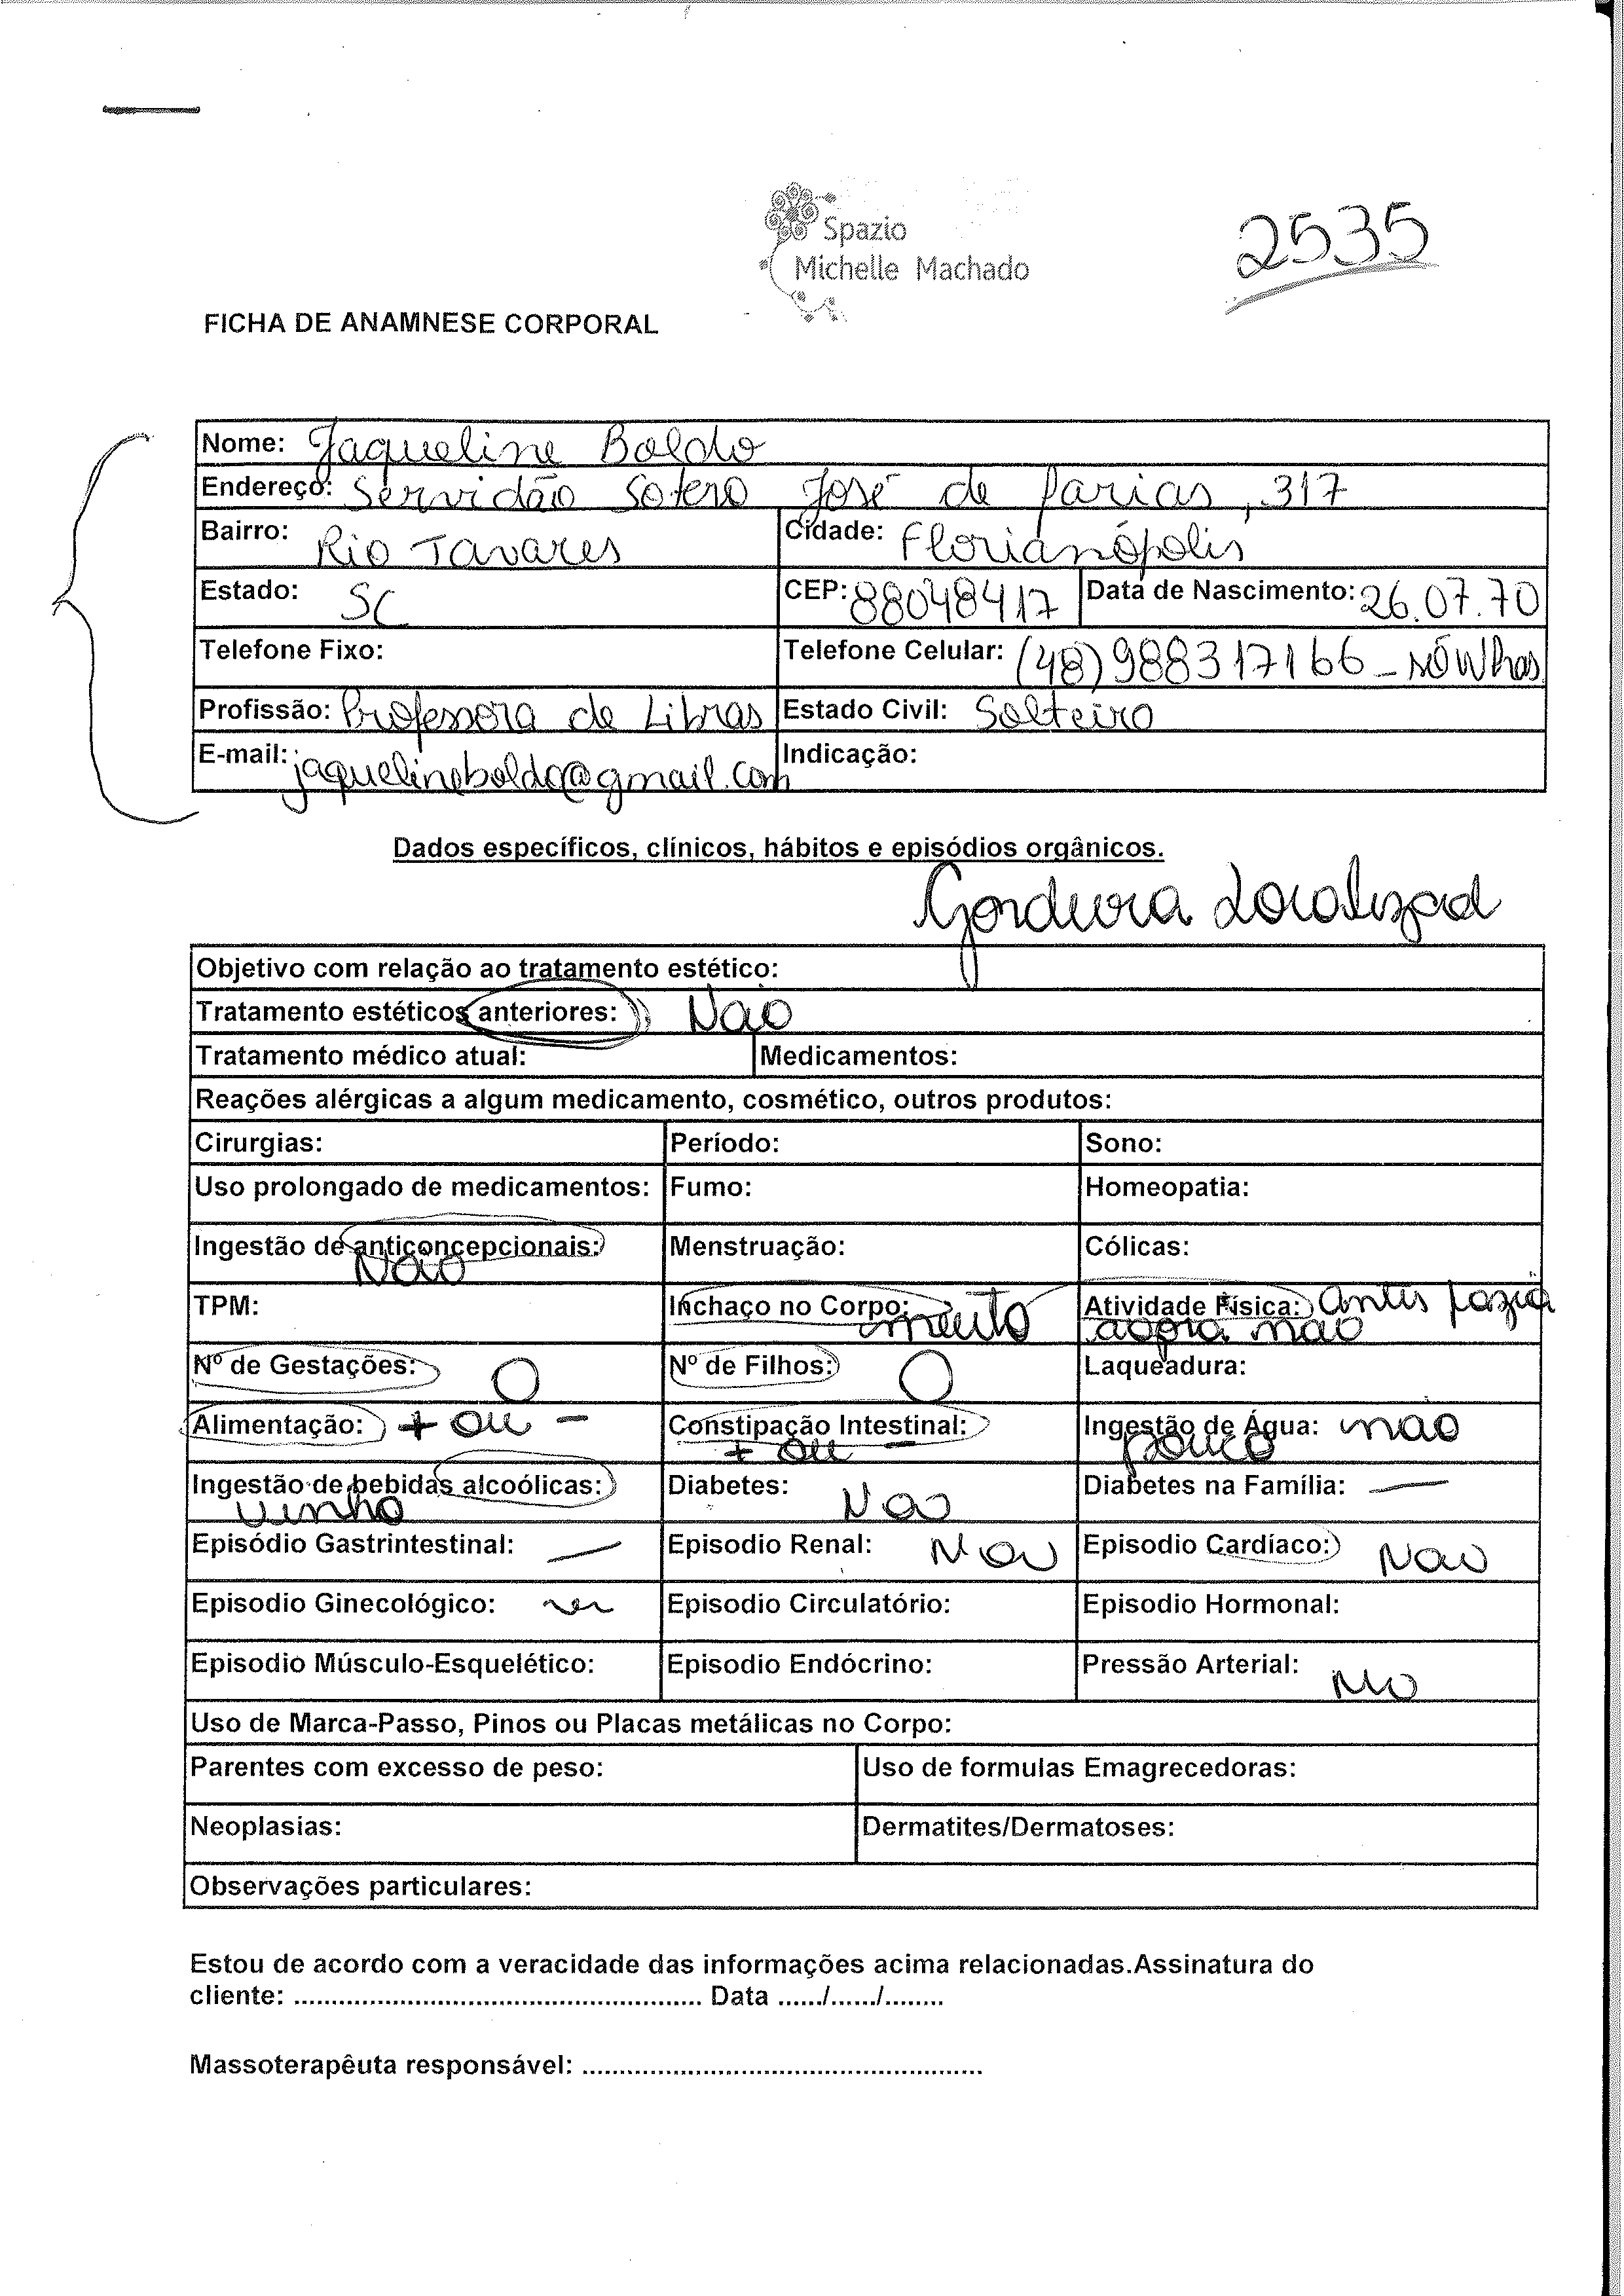 Spazio
Michelle Machado
2535
FICHA DE ANAMNESE CORPORAL
Nome: Jaqueline Boldo
Endereço: Servidão Sotero José de Farias, 317
Bairro: Rio Tavares Cidade: Florianópolis
Estado: SC CEP: 88048417 Data de Nascimento: 26.07.70
Telefone Fixo: Telefone Celular: (48) 988317166 - só Whas
Profissão: Professora de Libras Estado Civil: Solteiro
E-mail: jaquelineboldo@gmail.com Indicação:
Dados específicos, clínicos, hábitos e episódios orgânicos.
Gordura Localizad
Objetivo com relação ao tratamento estético:
Tratamento estéticos anteriores: Não
Tratamento médico atual: Medicamentos:
Reações alérgicas a algum medicamento, cosmético, outros produtos:
Cirurgias: Período: Sono:
Uso prolongado de medicamentos: Fumo: Homeopatia:
Ingestão de anticoncepcionais: Menstruação: Cólicas:
Não
TPM: Inchaço no Corpo: muito Atividade Física: antes fazia
agora não
Nº de Gestações: 0 Nº de Filhos: 0 Laqueadura:
Alimentação: + ou - Constipação Intestinal: Ingestão de Água: não
+ ou - pouco
Ingestão de bebidas alcoólicas: Diabetes: Não Diabetes na Família: —
vinho
Episódio Gastrintestinal: — Episodio Renal: Não Episodio Cardíaco: Não
Episodio Ginecológico: Episodio Circulatório: Episodio Hormonal:
Episodio Músculo-Esquelético: Episodio Endócrino: Pressão Arterial:
Uso de Marca-Passo, Pinos ou Placas metálicas no Corpo:
Parentes com excesso de peso: Uso de formulas Emagrecedoras:
Neoplasias: Dermatites/Dermatoses:
Observações particulares:
Estou de acordo com a veracidade das informações acima relacionadas.Assinatura do
cliente: ...................................................... Data ....../....../........
Massoterapêuta responsável: .....................................................